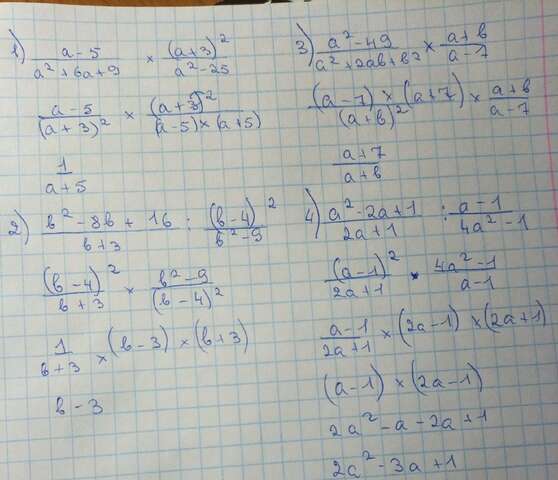 1) (a-5)/(a²+6a+9) × (a+3)²/(a²-25)
(a-5)/(a+3)² × (a+3)²/((a-5)×(a+5))
1/(a+5)
2) (b²-8b+16)/(b+3) : (b-4)²/(b²-9)
(b-4)²/(b+3) × (b²-9)/(b-4)²
1/(b+3) × (b-3) × (b+3)
b-3
3) (a²-49)/(a²+2ab+b²) × (a+b)/(a-7)
((a-7)×(a+7))/(a+b)² × (a+b)/(a-7)
(a+7)/(a+b)
4) (a²-2a+1)/(2a+1) : (a-1)/(4a²-1)
(a-1)²/(2a+1) · (4a²-1)/(a-1)
(a-1)/(2a+1) × (2a-1) × (2a+1)
(a-1) × (2a-1)
2a²-a-2a+1
2a²-3a+1